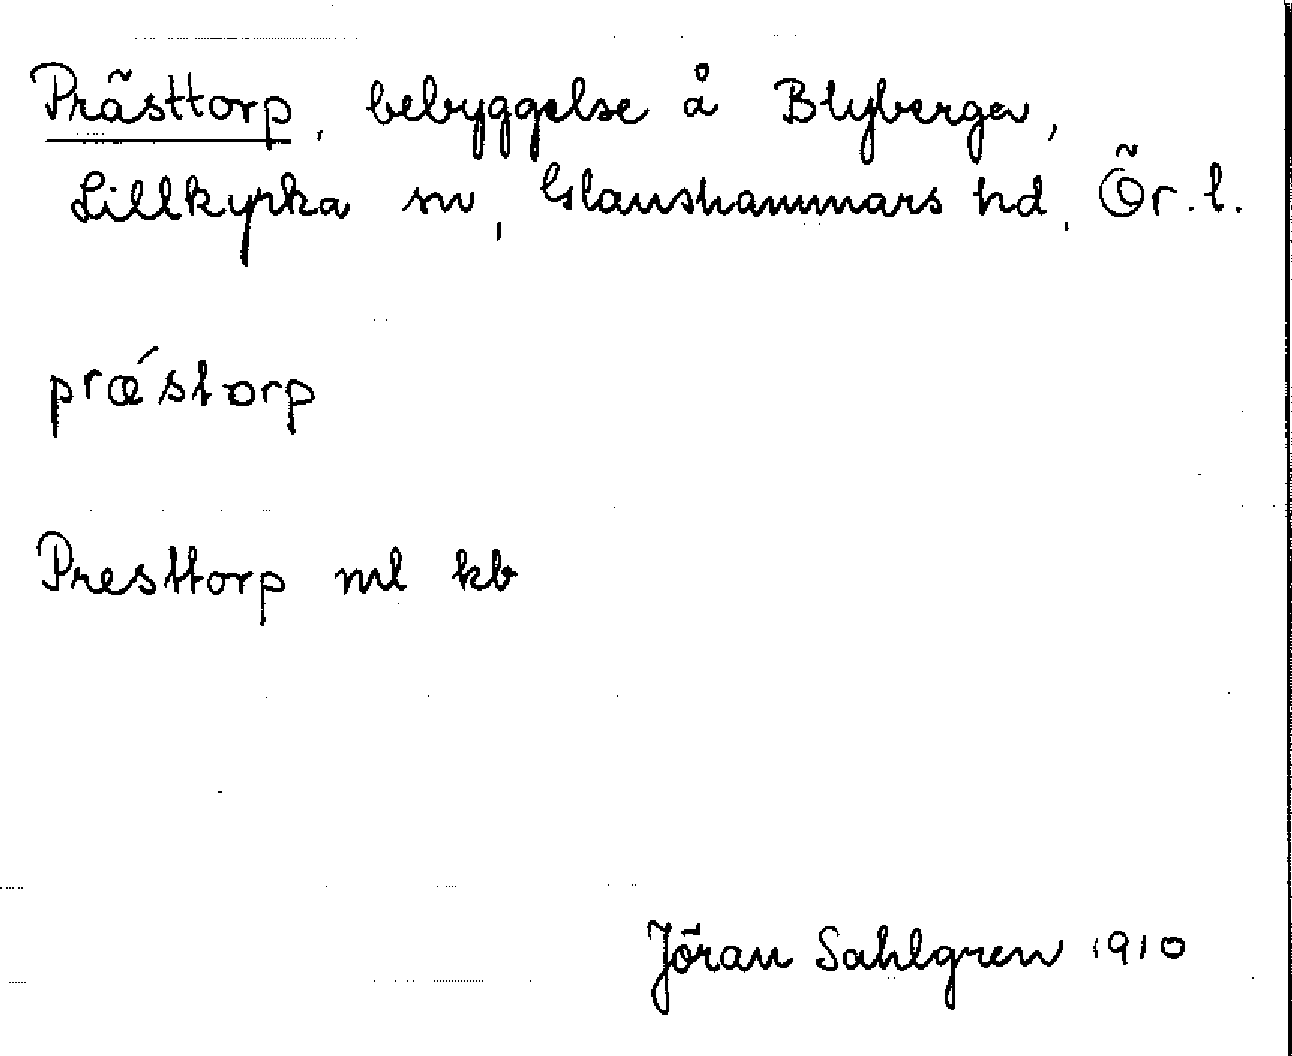 Prästtorp, bebyggelse å Blyberga,
Lillkyrka sn, Glanshammars hd, Ör. l.
prǽstorp
Presttorp ml kb
Jöran Sahlgren 1910